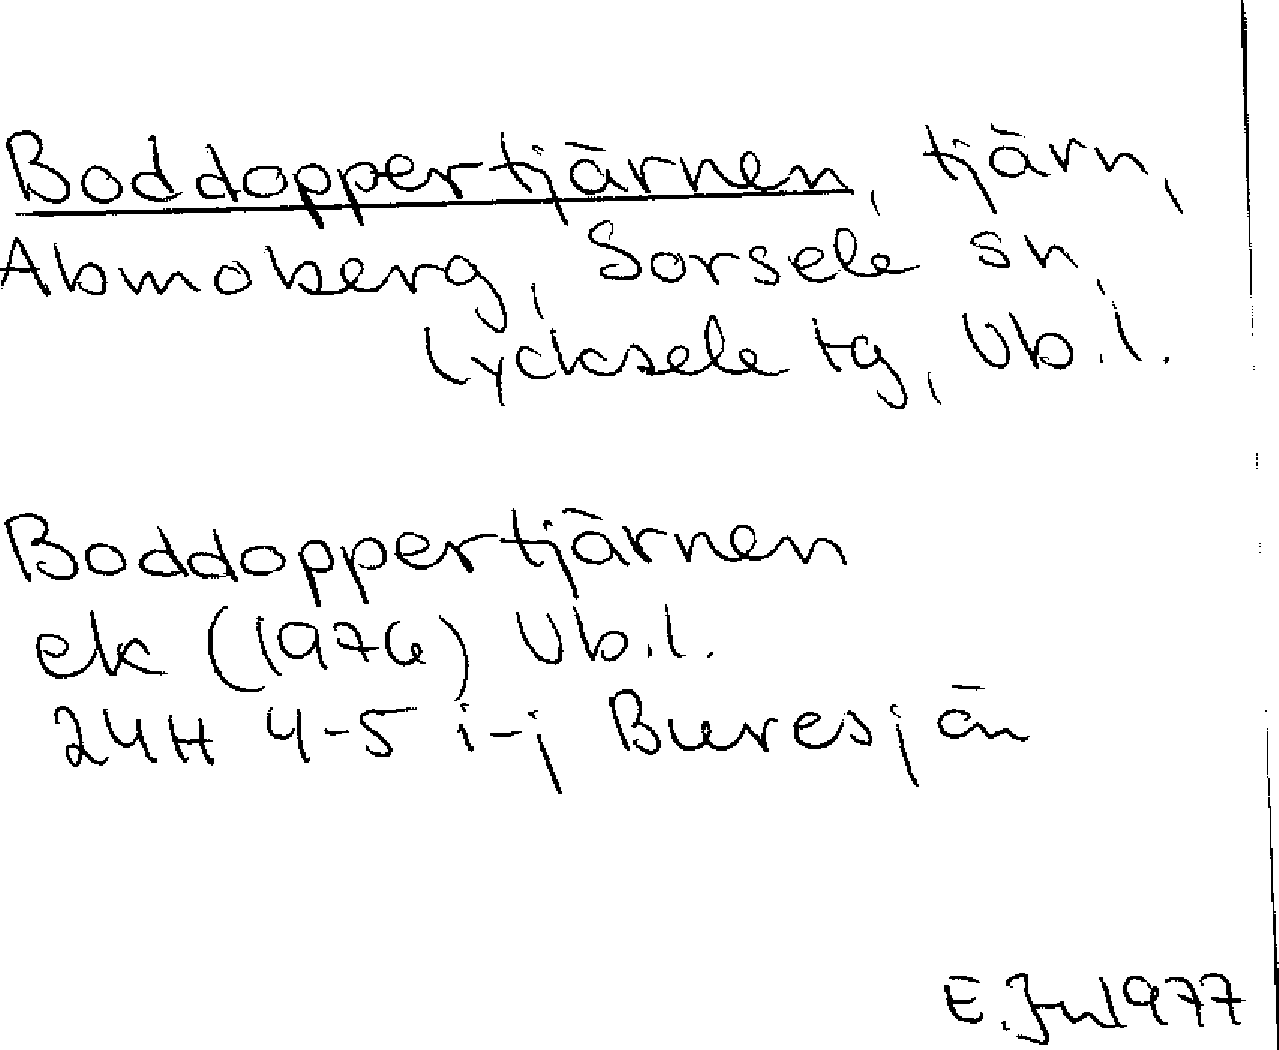 Boddoppertjärnen, tjärn,
Abmoberg, Sorsele sn,
Lycksele tg, Vb.l.
Boddoppertjärnen
ek (1976) Vb.l.
24H 4-5 i-j Buresjön
E. 1977